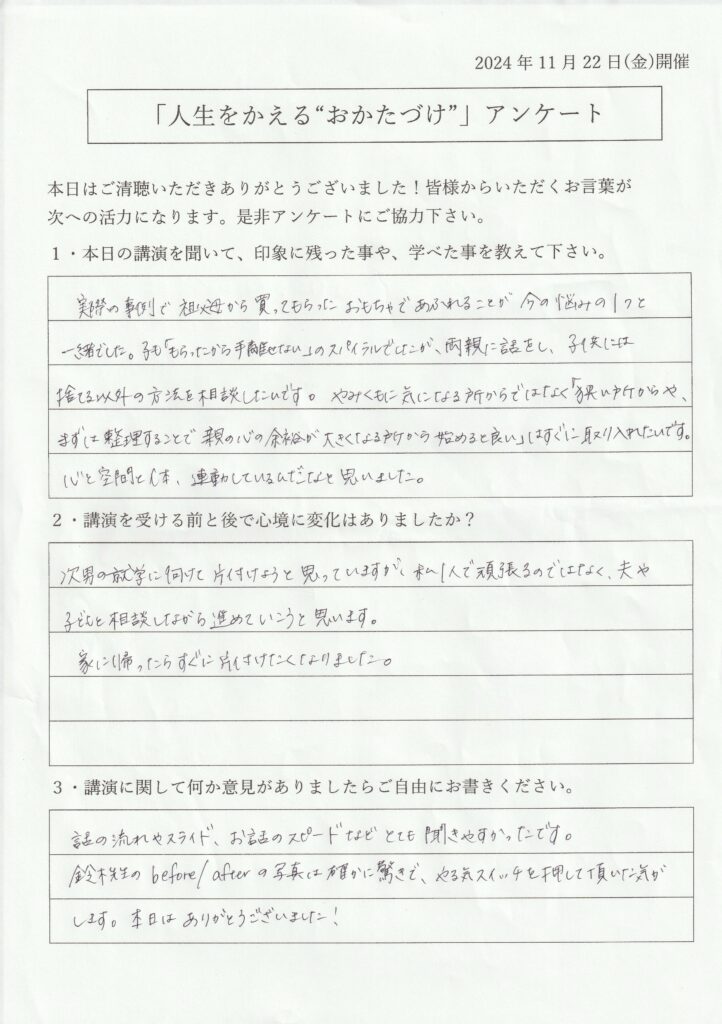 2024年11月22日(金)開催
「人生をかえる“おかたづけ”」アンケート
本日はご清聴いただきありがとうございました！皆様からいただくお言葉が
次への活力になります。是非アンケートにご協力下さい。
１・本日の講演を聞いて、印象に残った事や、学べた事を教えて下さい。
実際の事例で 祖父母から買ってもらった おもちゃで あふれることが 今の悩みの1つと
一緒でした。子も「もらったから手離せない」のスパイラルでしたが、両親に話をし、子供には
捨てる以外の方法を相談したいです。 やみくもに気になる所からではなく「狭い所からや、
まずは整理することで 親の心の余裕が大きくなる所から始めると良い」はすぐに取り入れたいです。
心と空間と体、連動しているんだなと思いました。
２・講演を受ける前と後で心境に変化はありましたか？
次男の就学に向けて 片付けようと思っていますが、私1人で頑張るのではなく、夫や
子どもと相談しながら進めていこうと思います。
家に帰ったらすぐに片付けたくなりました。
３・講演に関して何か意見がありましたらご自由にお書きください。
話の流れやスライド、お話のスピードなど とても 聞きやすかったです。
鈴木先生の before/after の写真は確かに驚きで、やる気スイッチを押して頂いた気が
します。本日は ありがとうございました！